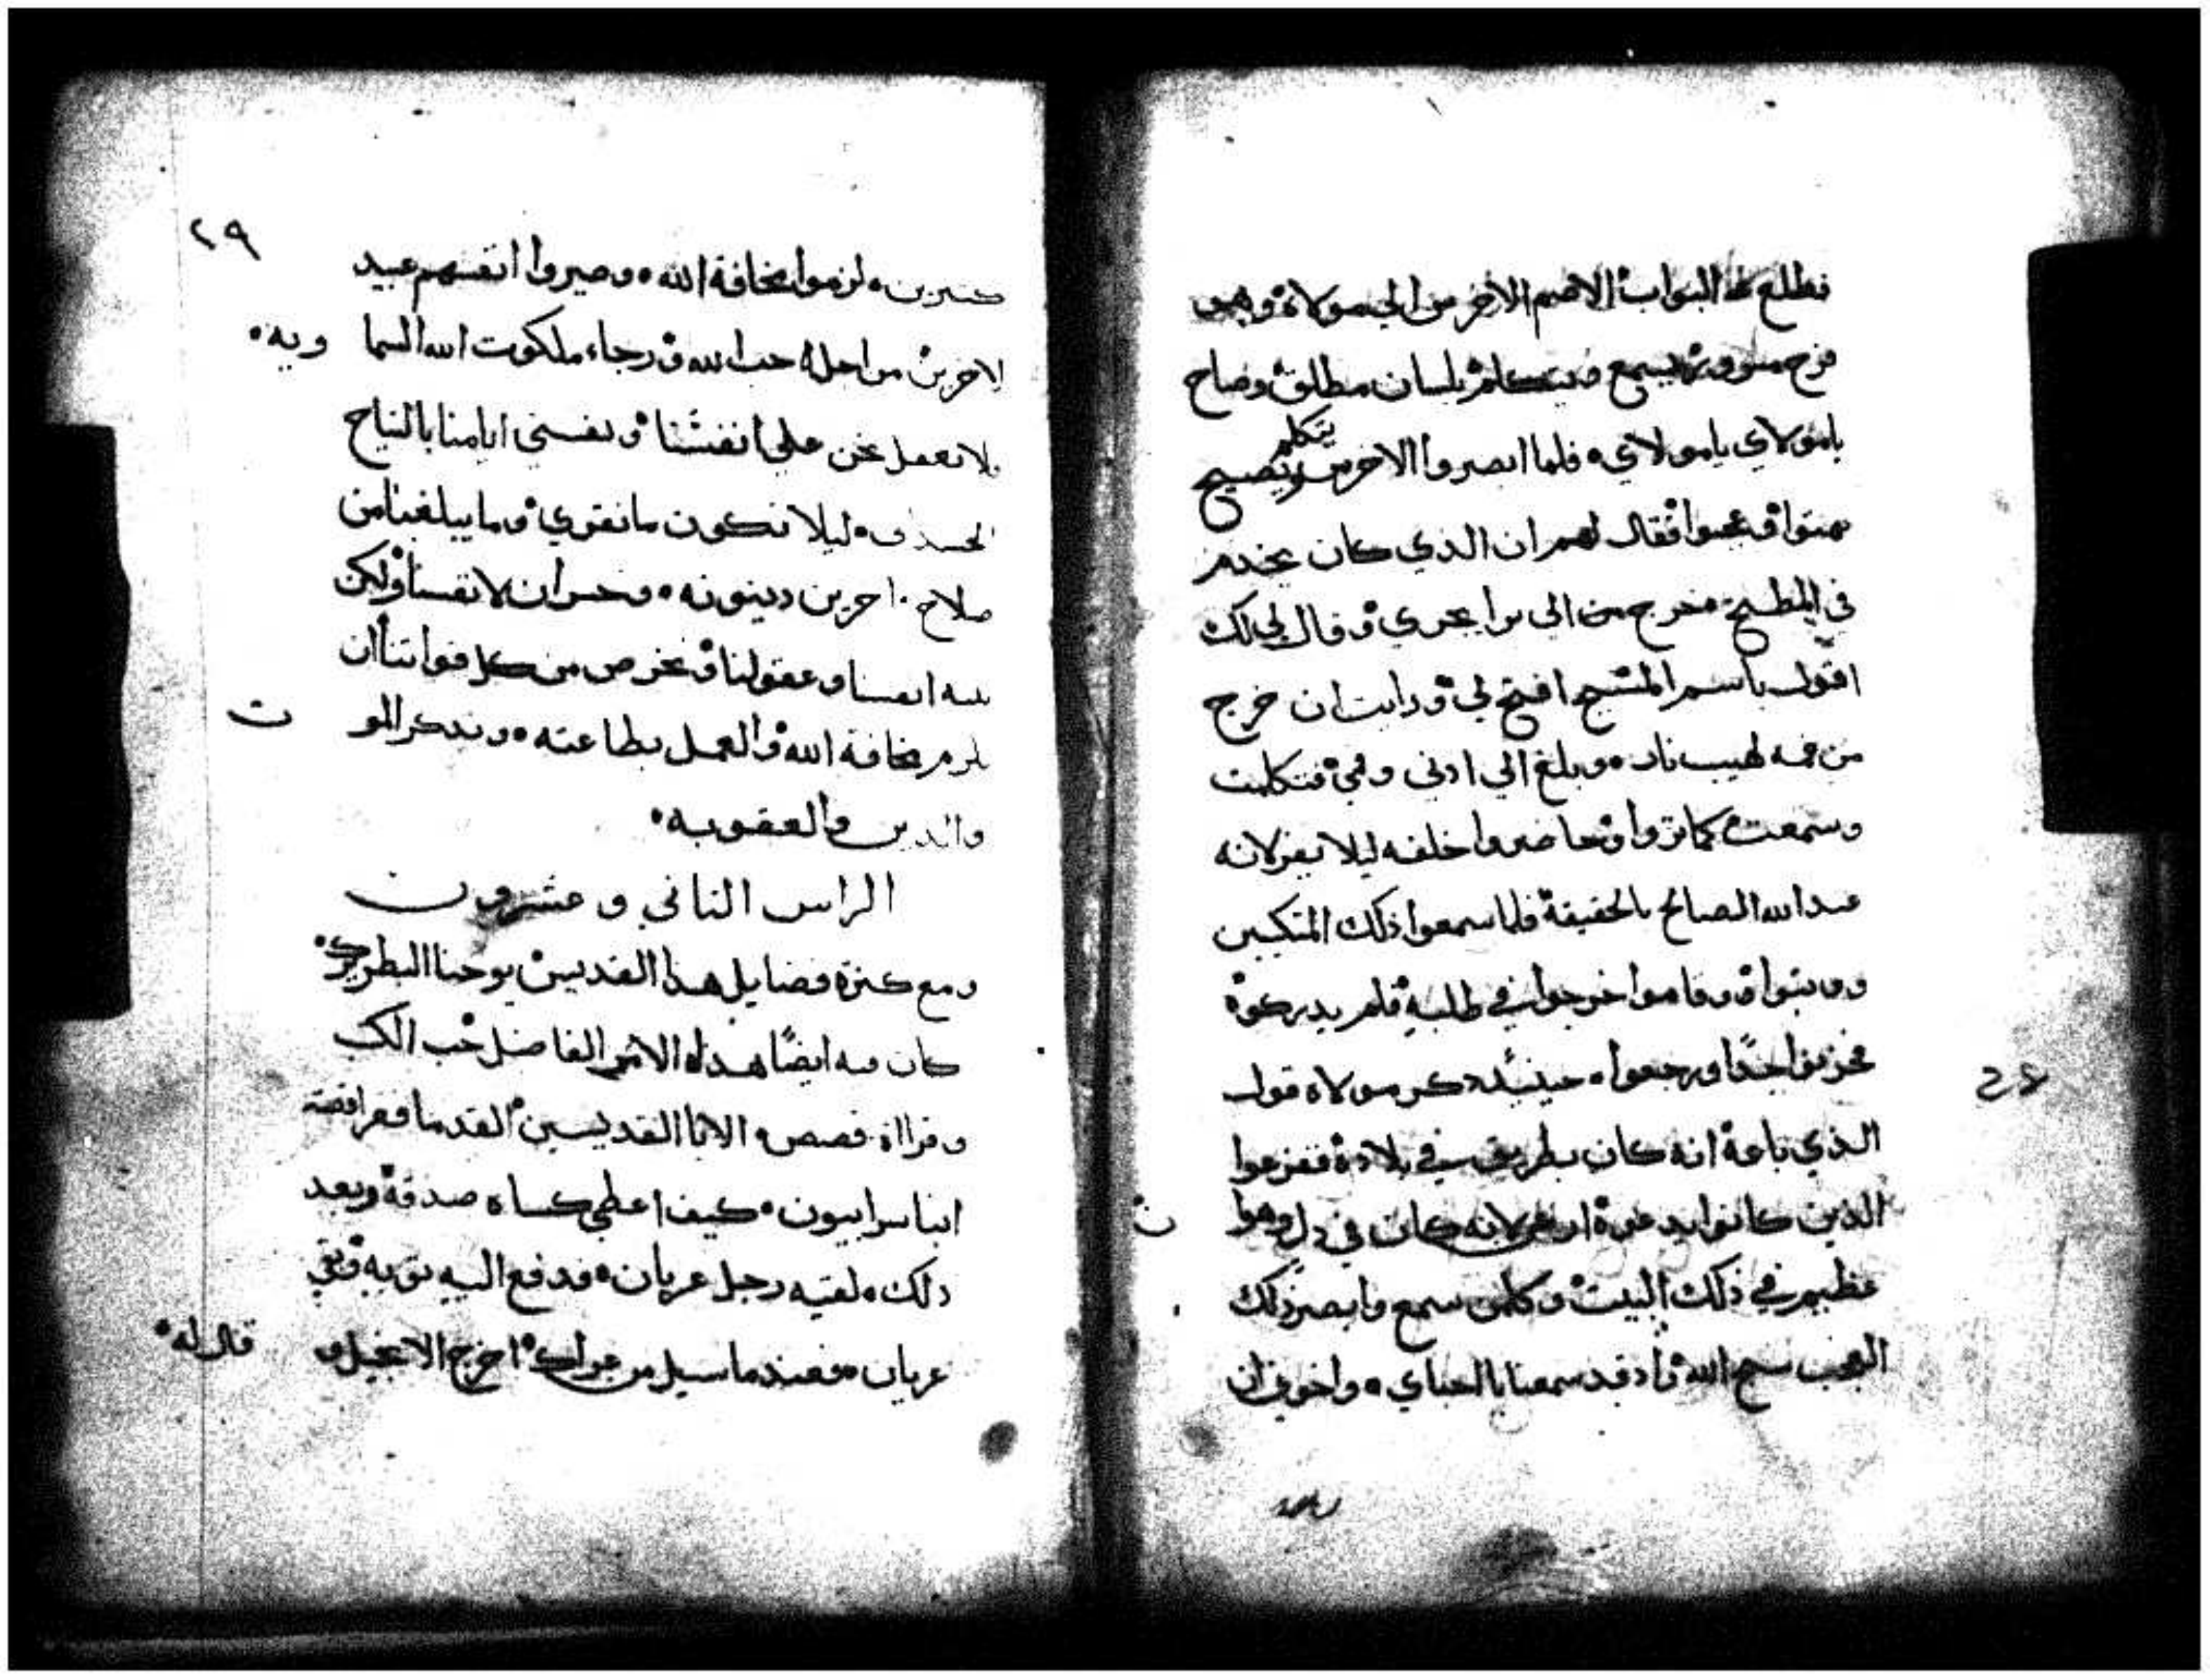 فطلع البواب الاصم الاخرس الي مولاه وهو
فرح مسرور يسمع ويتكلم بلسان مطلق وصاح
يامولاي يامولاي فلما ابصروا الاخرس يتكلم ويصيح
بهتوا وعجبوا فقال لهم ان الذي كان يخدم
في المطبخ خرج من الي برا يجري وقال لي لك
اقول باسم المسيح افتح لي ورايت ان خرج
من فمه لهيب نار وبلغ الي ادني وفمي فتكلمت
وسمعت كما تروا وحاضروا خلفه ليلا يفر لانه
عبد الله الصالح بالحقيقة فلما سمعوا ذلك المتكيين
وقاموا خرجوا في طلبه فلم يدركوه
فحزنوا جدا ورجعوا حينيذ دكر مولاه قول
الذي باعه انه كان بطريق في بلاده ففزعوا
الذين كانوا يدعوه لانه كان في دل وهوان
عظيم في ذلك البيت وكلمن سمع وابصر ذلك
العجب سبح الله واد قد سمعنا يا احباي واخوتي ان
٢٩
كتيرين لزموا مخافة الله وصيروا انفسهم عبيد
لاخرين من اجل حب الله ورجاء ملكوت الله السماويه
لا نعمل نحن علي انفسنا ونفني ايامنا بالنياح
ليلا تكون ما نقري وما يبلغنا من
صلاح اخرين دينونه وخسران لانفسنا ولكن
عقولنا ونحرص من كل قواتنا ان
نلزم مخافة الله والعمل بطاعته وندكر الموت
والدين والعقوبه
الراس التاني وعشرون
ومع كترة فضايل هذا القديس يوحنا البطريرك
كان فيه ايضا هذا الامر الفاضل حب الكتب
وقراة قصص الابا القديسين القدما فقرا قصة
انبا سرابيون كيف اعطي كساه صدقة وبعد
دلك لقيه رجل عريان فدفع اليه توبه وبقي
عريان فعندما سيل من عراك اخرج الانجيل وقال له